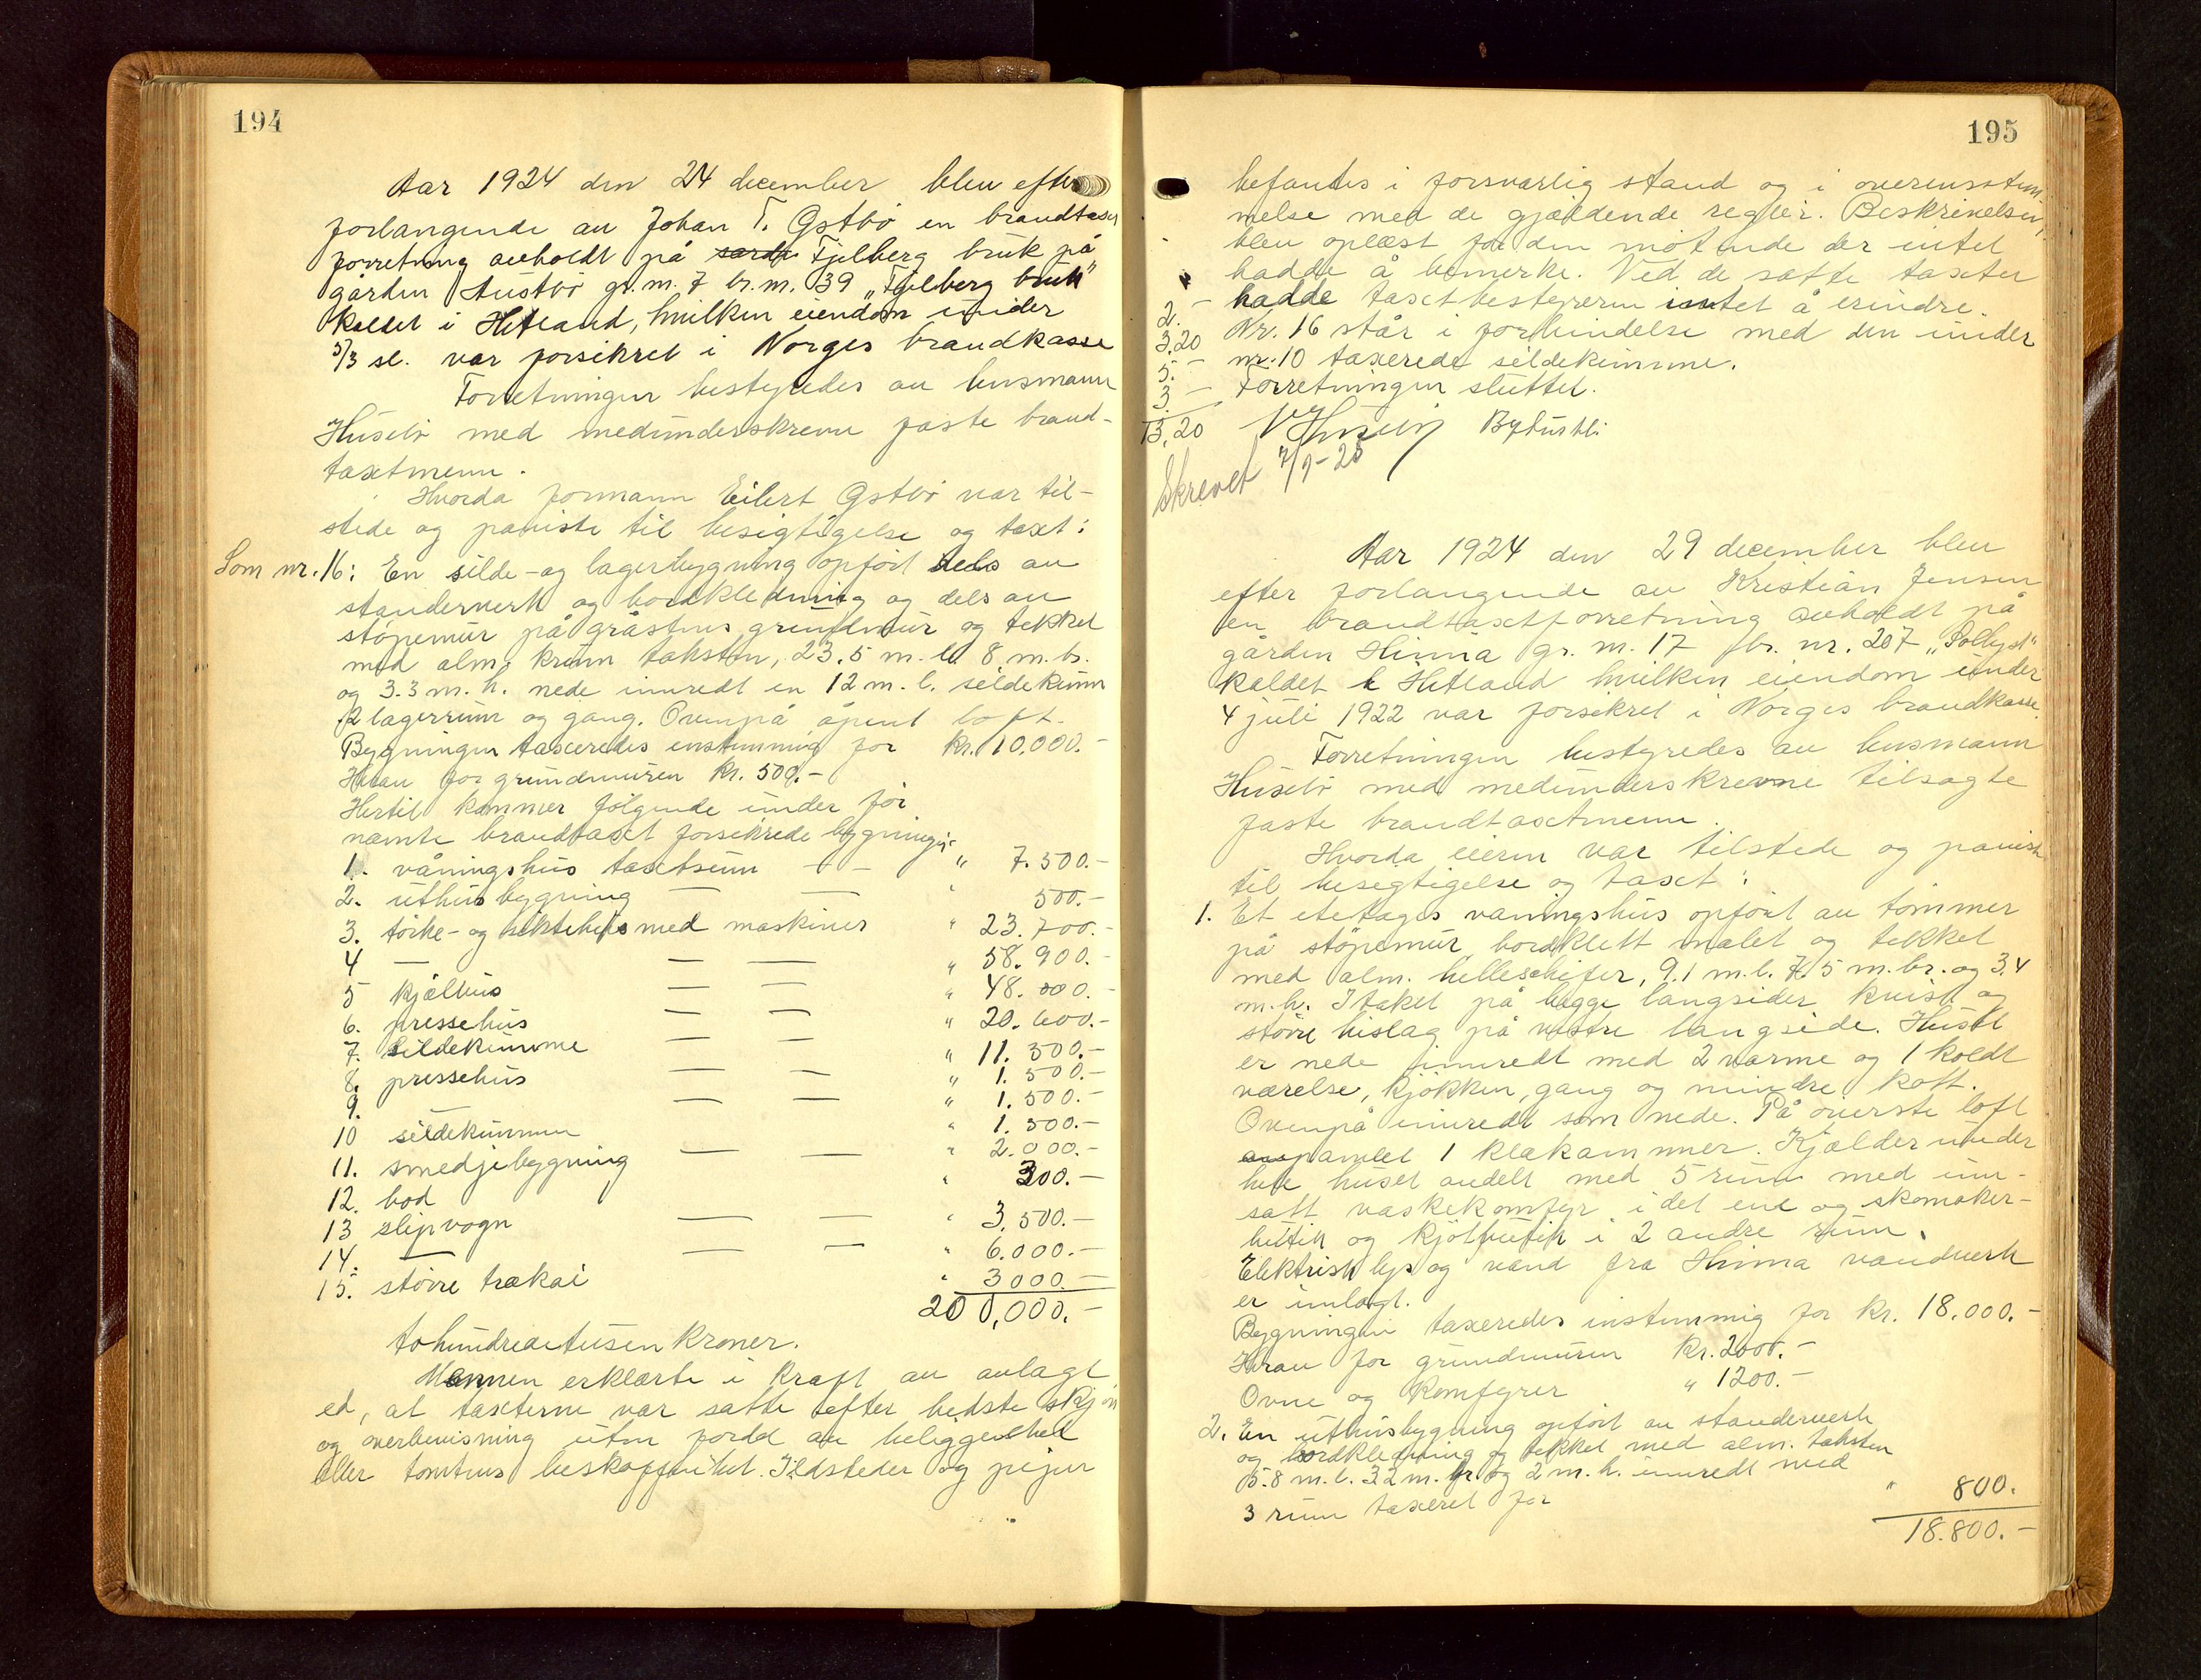 194
Aar 1924 den 24 december blev efter
forlangende av Johan T. Østbø en brandtaxt
forretning avholdt på Fjelberg bruk på
gården Austbø gr. nr. 7 br. nr. 39 „Fjelberg bruk"
kaldet i Hetland, hvilken eiendom under
5/3 sl. var forsikret i Norges brandkasse
Forretningen bestyredes av lensmann
Husebø med medunderskrevne faste brand-
taxtmenn.
Hvorda formann Eilert Østbø var til-
stede og paaviste til besigtigelse og taxt:
Som nr. 16: En silde- og lagerbygning opført dels av
stenderverk og bordkledning og dels av
støpemur på gråstens grundmur og tekket
med alm. krum taksten, 23.5 m. l. 8 m. br.
og 3.3 m. h. nede innredt en 12 m. l. sildekum
2 lagerrum og gang. Ovenpå åpent loft.
Bygningen taxeredes enstemmig for kr. 10.000.-
Herav for grundmuren kr. 500.-
Hertil kommer følgende under før
nævnte brandtaxt forsikrede bygninger
1. våningshus taxtsum " 7.500.-
2. uthusbygning — — " 500.-
3. tørke- og siktehus med maskiner " 23.700.-
4 — — — " 58.900.-
5 kjelhus — — " 48.000.-
6. pressehus — — " 20.600.-
7. Sildekumme — — " 11.500.-
8. pressehus — — " 1.500.-
9. — — — " 1.500.-
10 sildekummen " 1.500.-
11. smedjebygning — — " 2.000.-
12. bod " 300.-
13 slipvogn — — " 3.500.-
14. — — — " 6.000.-
15. større trækai " 3000.-
200,000.-
tohundredetusen kroner.
Mennen erklærte i kraft av avlagt
ed, at taxterne var satte efter bedste skjøn
og overbevisning uten forhold av beliggenhet
eller tomtens beskaffenhet. Ildsteder og piper
195
befantes i forsvarlig stand og i overensstem-
melse med de gjældende regler. Beskrivelsen
blev oplæst for den møtende der intet
hadde å bemerke. Ved de satte taxter
hadde taxtbestyreren intet å erindre.
Nr. 16 står i forbindelse med den under
nr. 10 taxerede sildekumme.
Forretningen sluttet.
2.-
3.20
5.-
3.-
13,20
Skrevet 7/1-25
Aar 1924 den 29 december blev
efter forlangende av Kristian Jensen
en brandtaxtforretning avholdt på
gården Hinna gr. nr. 17 br. nr. 207 „Solbyst"
kaldet i Hetland hvilken eiendom under
4 juli 1922 var forsikret i Norges brandkasse.
Forretningen bestyredes av lensmann
Husebø med medunderskrevne tilsagte
faste brandtaxtmenn.
Hvorda eieren var tilstede og paaviste
til besigtigelse og taxt:
1. Et etetages våningshus opført av tømmer
på støpemur bordklett malet og tekket
med alm. helleskifer, 9.1 m. l. 7.5 m. br. og 3.4
m. h. I taket på begge langsider kvist og
større bislag på vestre langside. Huset
er nede innredt med 2 varme og 1 koldt
værelse, kjøkken, gang og mindre kott.
Ovenpå innredt som nede. På øverste loft
panelet 1 klækammer. Kjælder under
hele huset andelt med 5 rum med inn-
satt vaskekomfyr i det ene og skomaker-
butik og kjøtbutik i 2 andre rum.
Elektrisk lys og vand fra Hinna vandverk
er innlagt.
Bygningen taxeredes enstemmig for kr. 18.000.-
Herav for grundmuren kr. 2000.-
Ovne og komfyrer " 1200.-
2. En uthusbygning opført av stenderverk
og bordkledning og tekket med alm. taksten
5.8 m. l. 3.2 m. br. og 2 m. h. innredt med
3 rum taxeret for " 800.
18.800.-